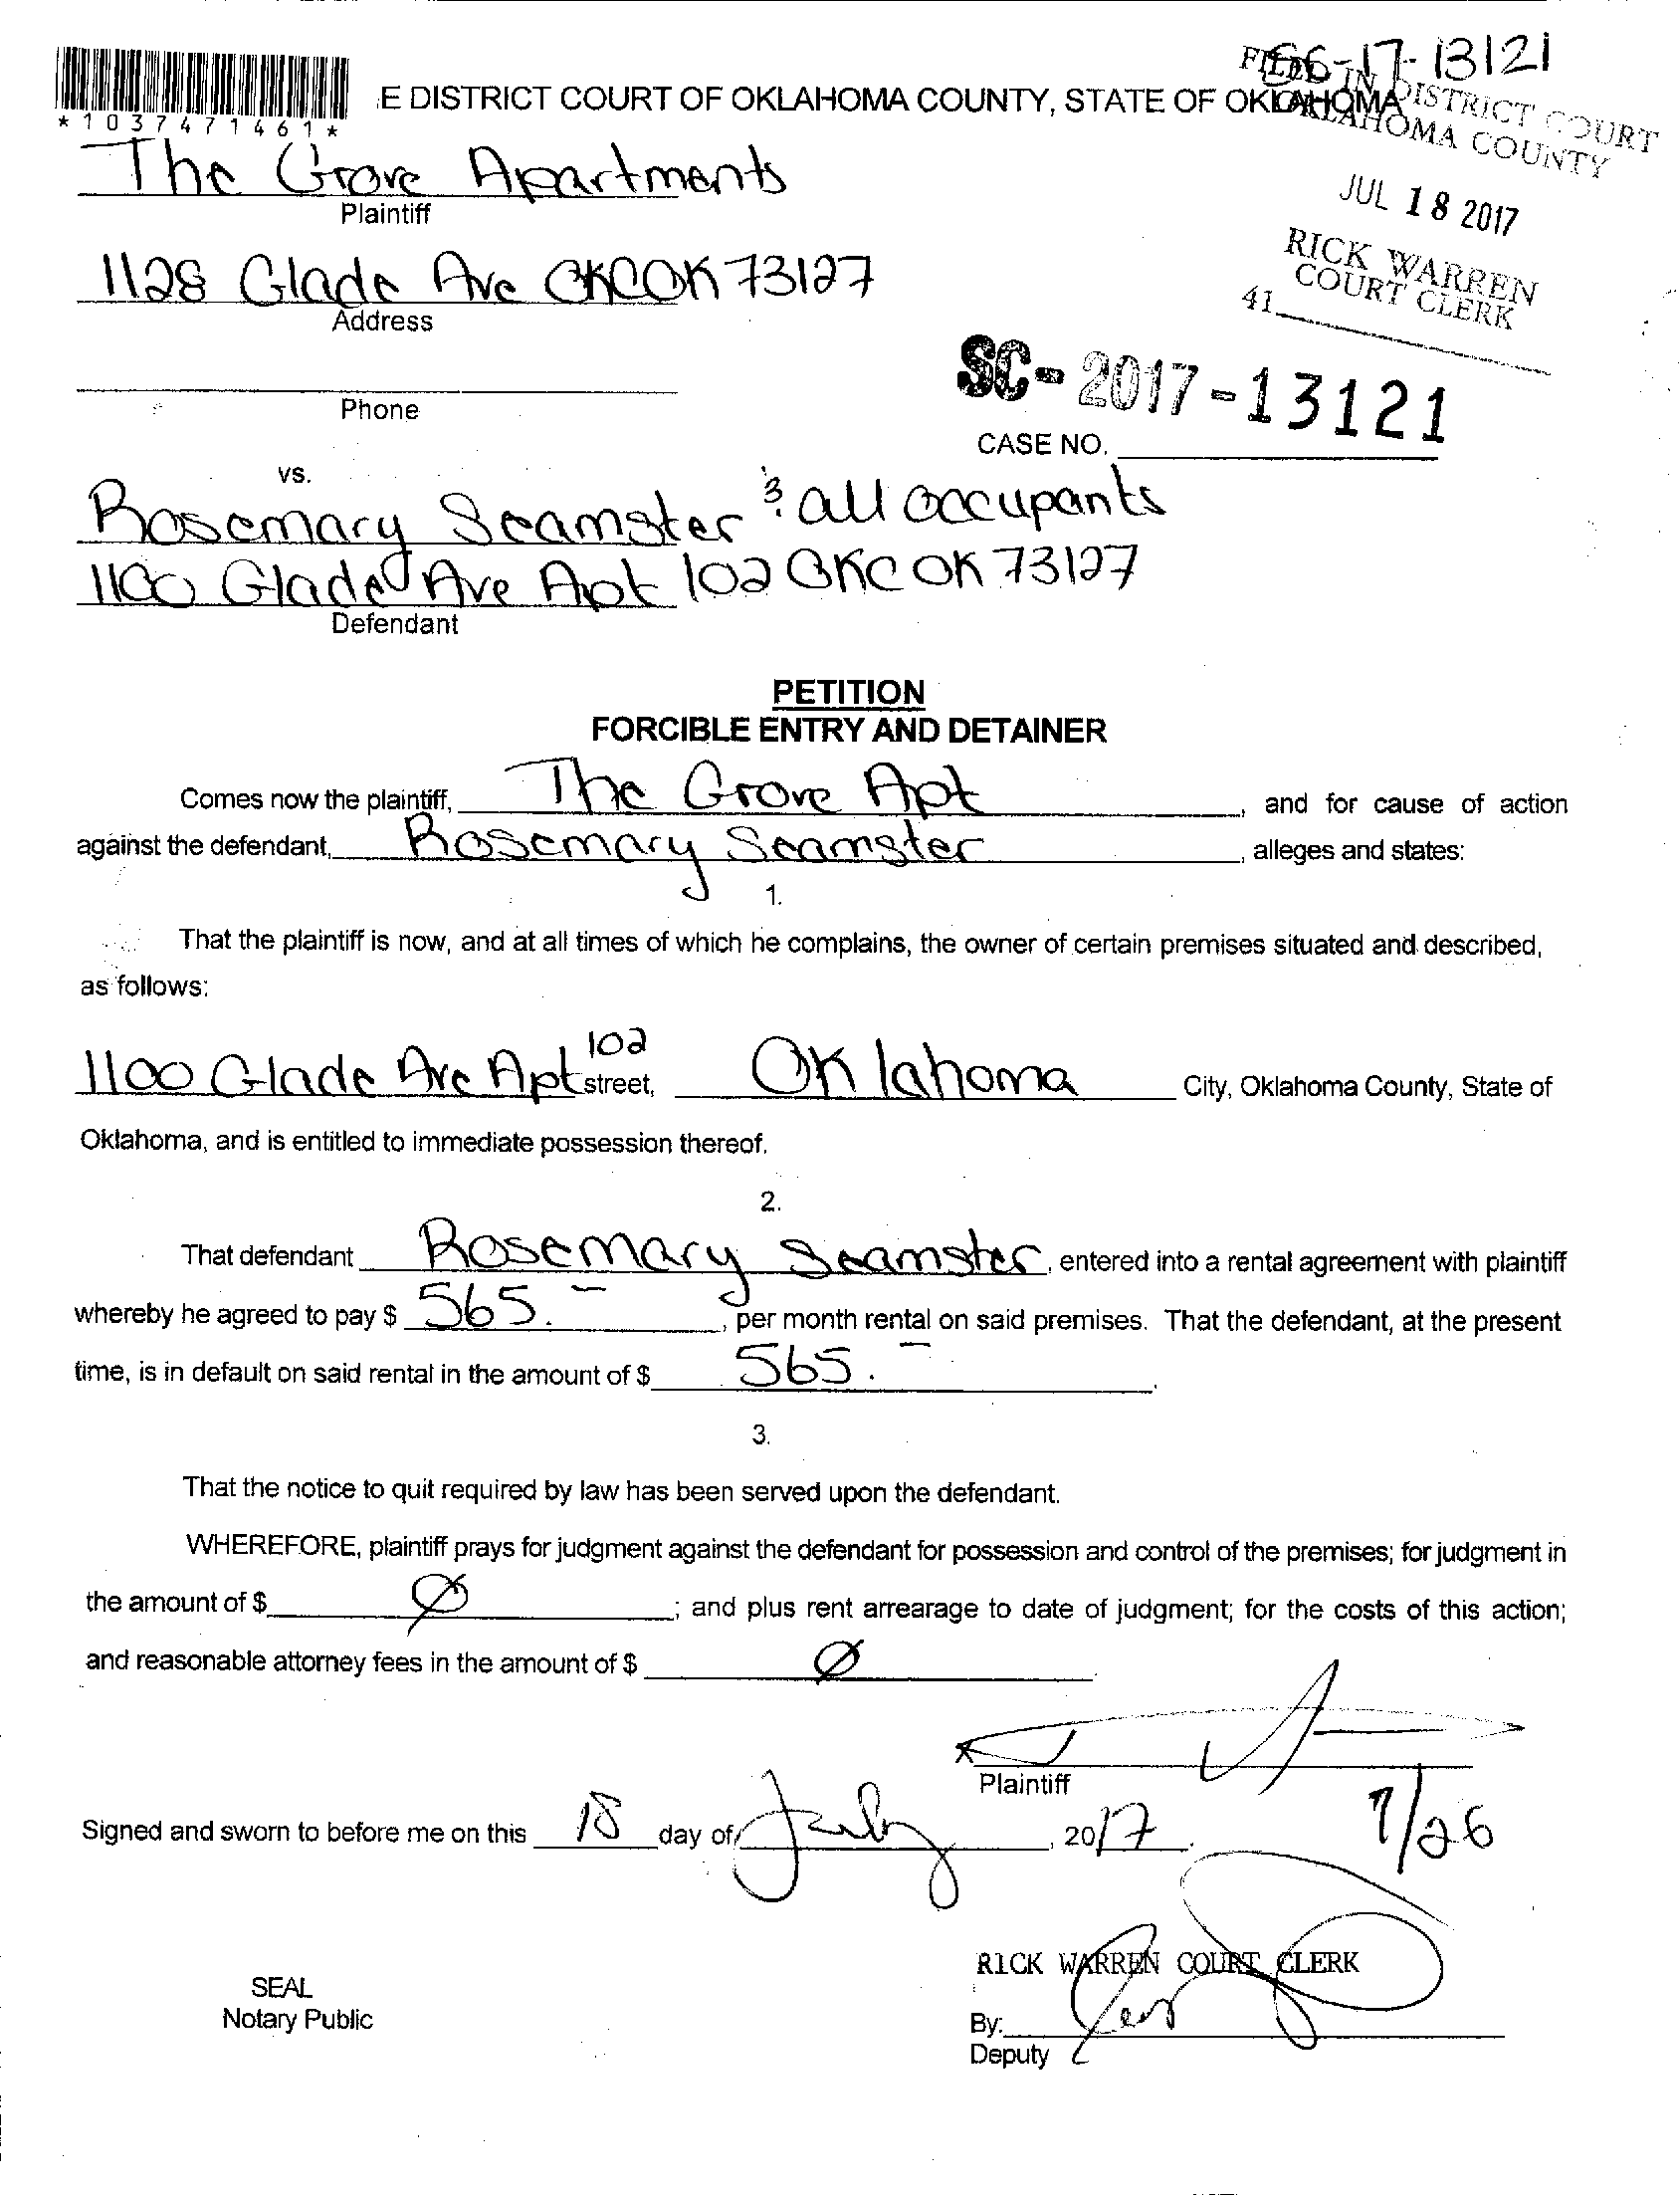 SC-17-13121
*1037471461*
E DISTRICT COURT OF OKLAHOMA COUNTY, STATE OF OKLAHOMA
FILED IN DISTRICT COURT
OKLAHOMA COUNTY
JUL 18 2017
RICK WARREN
COURT CLERK
41
The Grove Apartments
Plaintiff
1128 Glade Ave OKC OK 73127
Address
Phone
SC-2017-13121
CASE NO.
vs.
Rosemary Seamster & all occupants
1100 Glade Ave Apt 102 OKC OK 73127
Defendant
PETITION
FORCIBLE ENTRY AND DETAINER
Comes now the plaintiff, The Grove Apt, and for cause of action
against the defendant, Rosemary Seamster, alleges and states:
1.
That the plaintiff is now, and at all times of which he complains, the owner of certain premises situated and described,
as follows:
1100 Glade Ave Apt 102 street, Oklahoma City, Oklahoma County, State of
Oklahoma, and is entitled to immediate possession thereof.
2.
That defendant Rosemary Seamster, entered into a rental agreement with plaintiff
whereby he agreed to pay $ 565.-, per month rental on said premises. That the defendant, at the present
time, is in default on said rental in the amount of $ 565.-.
3.
That the notice to quit required by law has been served upon the defendant.
WHEREFORE, plaintiff prays for judgment against the defendant for possession and control of the premises; for judgment in
the amount of $ Ø; and plus rent arrearage to date of judgment; for the costs of this action;
and reasonable attorney fees in the amount of $ Ø.
Plaintiff
Signed and sworn to before me on this 18 day of July, 2017.
7/26
RICK WARREN COURT CLERK
SEAL
Notary Public
By:
Deputy